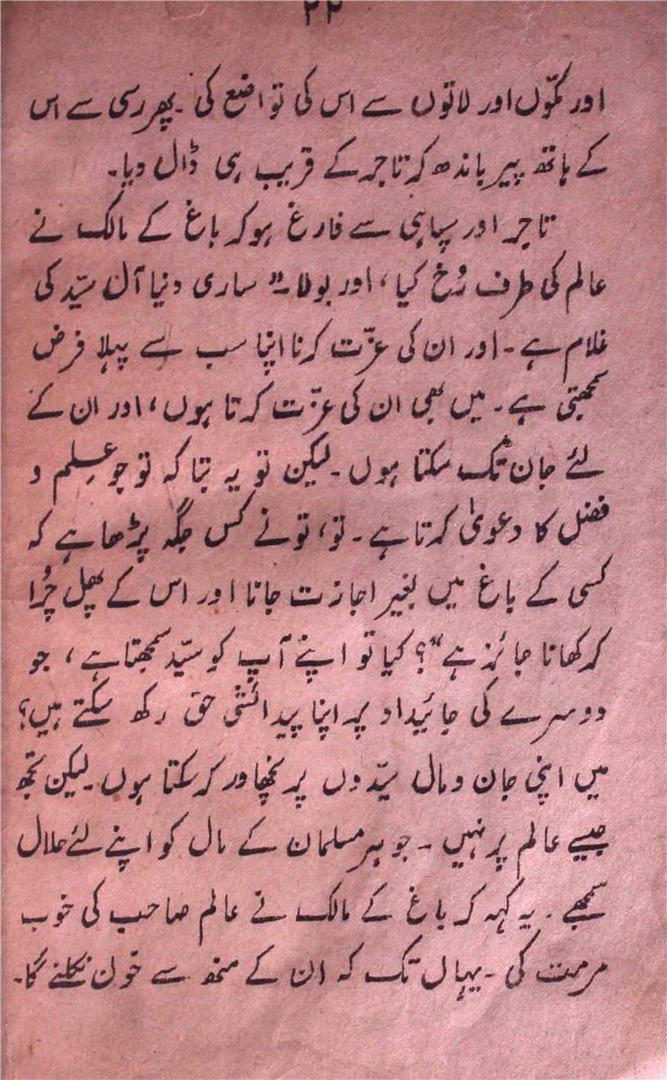 ۲۲
اور مکّوں اور لاتوں سے اس کی تواضع کی۔ پھر رسی سے اس
کے ہاتھ پیر باندھ کر تاجر کے قریب ہی ڈال دیا۔
تاجر اور سپاہی سے فارغ ہو کر باغ کے مالک نے
عالم کی طرف رُخ کیا، اور بولا۔" ساری دنیا آل سیّد کی
غلام ہے۔ اور ان کی عزّت کرنا اپنا سب سے پہلا فرض
سمجھتی ہے۔ میں بھی ان کی عزّت کرتا ہوں، اور ان کے
لئے جان تک سکتا ہوں۔ لیکن تو یہ بتا کہ تو جو علم و
فضل کا دعویٰ کرتا ہے۔ تو، تو نے کس جگہ پڑھا ہے کہ
کسی کے باغ میں بغیر اجازت جانا اور اس کے پھل چُرا
کر کھانا جائز ہے"؟ کیا تو اپنے آپ کو سیّد سمجھتا ہے، جو
دوسرے کی جائیداد پر اپنا پیدائشی حق رکھ سکتے ہیں؟
میں اپنی جان و مال سیّدوں پر نچھاور کر سکتا ہوں۔ لیکن تجھ
جیسے عالم پر نہیں ۔ جو ہر مسلمان کے مال کو اپنے لئے حلال
سمجھے۔ یہ کہہ کر باغ کے مالک نے عالم صاحب کی خوب
مرمت کی۔ یہاں تک کہ ان کے منھ سے خون نکلنے لگا۔